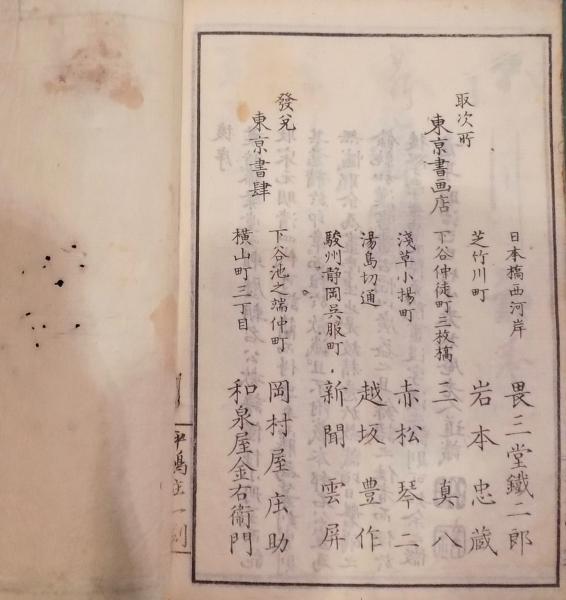 取次所
東亰書画店
日本橋西河岸 畏三堂鐵二郎
芝竹川町 岩本忠蔵
下谷仲徒町三枚橋 三真八
淺草小揚町 赤松琴二
湯島切通 越坂豊作
駿州静岡呉服町 新聞雲屏
發兌
東亰書肆
下谷池之端仲町 岡村屋庄助
横山町三丁目 和泉屋金右衛門